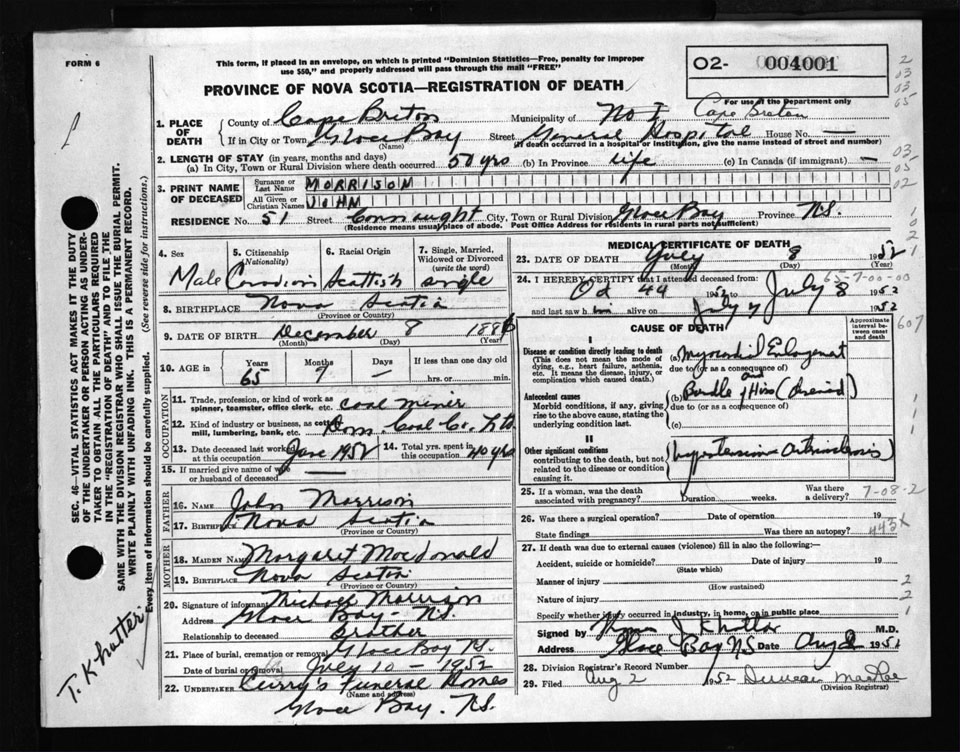 FORM 6
This form, if placed in an envelope, on which is printed "Dominion Statistics—Free, penalty for improper
use $50," and properly addressed will pass through the mail "FREE"
PROVINCE OF NOVA SCOTIA—REGISTRATION OF DEATH
O2- 004001
For use of the Department only
2
03
03
65
1. PLACE OF DEATH
County of Cape Breton Municipality of No 1 Cape Breton
If in City or Town Glace Bay (Name) Street General Hospital House No. —
(If death occurred in a hospital or institution, give the name instead of street and number)
2. LENGTH OF STAY (in years, months and days)
(a) In City, Town or Rural Division where death occurred 50 yrs (b) In Province life (c) In Canada (if immigrant) —
03
05
02
3. PRINT NAME OF DECEASED
Surname or Last Name MORRISON
All Given or Christian Names JOHN
RESIDENCE No. 51 Street Connaught City, Town or Rural Division Glace Bay Province N.S.
(Residence means usual place of abode. Post Office Address for residents in rural parts not sufficient)
4. Sex
Male
5. Citizenship (Nationality)
Canadian
6. Racial Origin
Scottish
7. Single, Married, Widowed or Divorced (write the word)
single
8. BIRTHPLACE Nova Scotia
(Province or Country)
9. DATE OF BIRTH December 8 1886
(Month) (Day) (Year)
10. AGE IN Years 65 Months 7 Days — If less than one day old
hrs. or min.
OCCUPATION
11. Trade, profession, or kind of work as spinner, teamster, office clerk, etc. coal miner
12. Kind of industry or business, as cotton mill, lumbering, bank, etc. Dom. Coal Co. Ltd
13. Date deceased last worked at this occupation June 1952 14. Total yrs. spent in this occupation 40 yrs
15. If married give name of wife or husband of deceased —
FATHER
16. NAME John Morrison
17. BIRTHPLACE Nova Scotia
(Province or Country)
MOTHER
18. MAIDEN NAME Margaret MacDonald
19. BIRTHPLACE Nova Scotia
(Province or Country)
20. Signature of informant Michael Morrison
Address Glace Bay - N.S.
Relationship to deceased Brother
21. Place of burial, cremation or removal Glace Bay N.S.
Date of burial or removal July 10 - 1952
22. UNDERTAKER Curry's Funeral Homes
(Name and address)
Glace Bay. N.S.
MEDICAL CERTIFICATE OF DEATH
23. DATE OF DEATH July 8 1952
(Month) (Day) (Year)
24. I HEREBY CERTIFY that I attended deceased from:
65-7-00-00
1952 to July 8 1952
and last saw him alive on July 7 1952
CAUSE OF DEATH
Approximate interval between onset and death
607
I
Disease or condition directly leading to death
(This does not mean the mode of dying, e.g., heart failure, asthenia, etc. It means the disease, injury, or complication which caused death.)
(a) Myocardial Enlargement
due to (or as a consequence of)
and
Antecedent causes
Morbid conditions, if any, giving rise to the above cause, stating the underlying condition last.
(b) Bundle of Hiss
due to (or as a consequence of)
(c)
II
Other significant conditions contributing to the death, but not related to the disease or condition causing it.
Hypertension
25. If a woman, was the death associated with pregnancy? Duration weeks. Was there a delivery? 7-08-2
26. Was there a surgical operation? Date of operation 19
State findings Was there an autopsy? 443X
27. If death was due to external causes (violence) fill in also the following:—
Accident, suicide or homicide? Date of injury 19
(State which)
Manner of injury
(How sustained)
Nature of injury
Specify whether injury occurred in industry, in home, or in public place
Signed by M.D.
Address Glace Bay NS Date Aug 2 1952
28. Division Registrar's Record Number
29. Filed Aug 2 1952 Duncan
(Division Registrar)
SEC. 46—VITAL STATISTICS ACT MAKES IT THE DUTY
OF THE UNDERTAKER OR PERSON ACTING AS UNDER-
TAKER TO OBTAIN ALL THE PARTICULARS REQUIRED
IN THE "REGISTRATION OF DEATH" AND TO FILE THE
SAME WITH THE DIVISION REGISTRAR WHO SHALL ISSUE THE BURIAL PERMIT.
WRITE PLAINLY WITH UNFADING INK. THIS IS A PERMANENT RECORD.
Every item of information should be carefully supplied. (See reverse side for instructions.)
T. Khatter